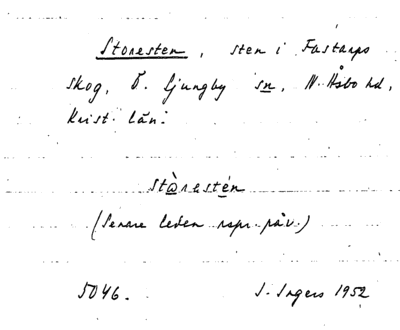 Storesten, sten i Fastarps
skog, Ö. Ljungby sn, N. Åsbo hd,
Krist. län.
stòrestén
(Senare leden rspr. påv.)
5046. I. Ingers 1952